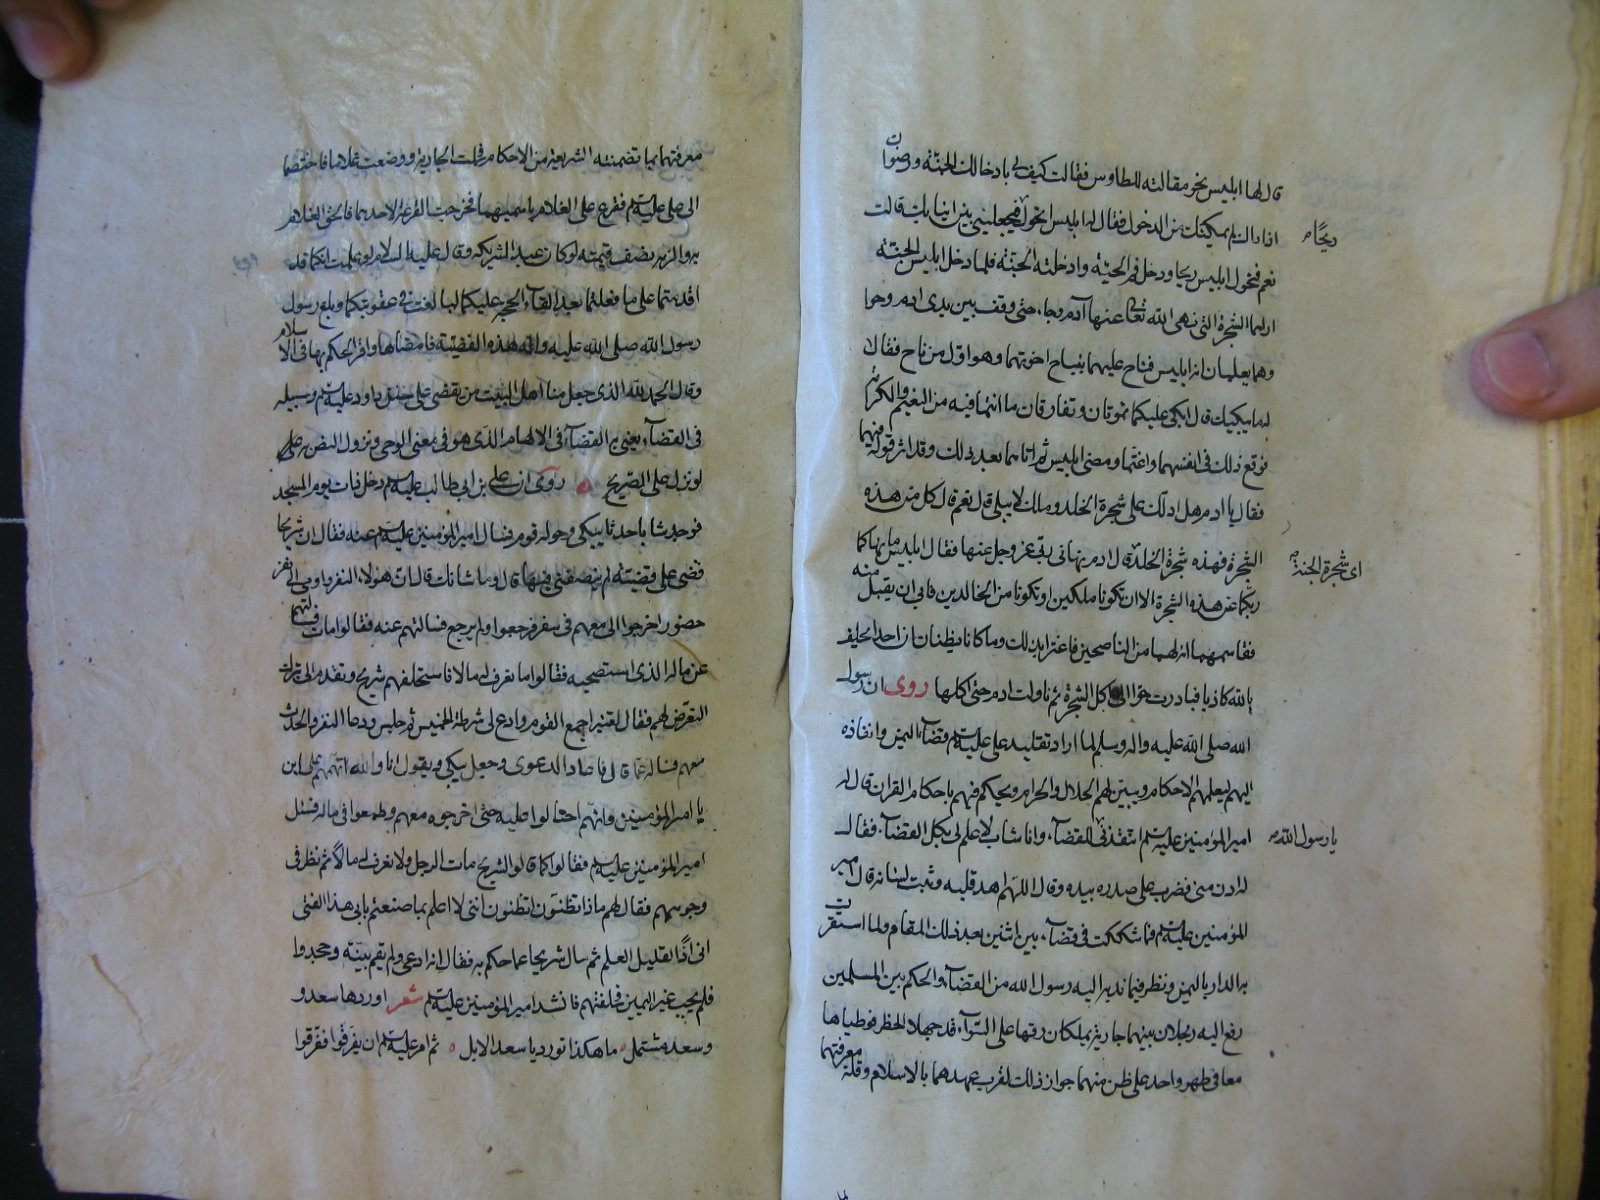 قال لها ابليس نحو مقالته للطاوس فقالت كيف لي بادخالك الجنة ورضوان
اذا راك لم يمكنك من الدخول فقال لها ابليس اتحول فيجعلينى بين انيابك قالت
ريحًا
نعم فتحول ابليس ريحا ودخل فم الحية وادخلته الجنة فلما دخل ابليس الجنة
اراهما الشجرة التى نهى الله تعالى عنها آدم وجاء حتى وقف بين يدى ادم وحوا
وهما يعلمان انه ابليس فناح عليهما بنياح احزنتهما وهو اول من ناح فقال
له ما يبكيك قال ابكى عليكما تموتان وتفارقان ما انتما فيه من النعيم والكرامة
فوقع ذلك فى انفسهما واغتما ومضى ابليس ثم اتاهما بعد ذلك وقد اثر قوله فيهما
فقال يا ادم هل ادلك على شجرة الخلد وملك لا يبلى قال نعم قال كل من هذه
الشجرة فهذه شجرة الخلد قال ادم نهانى ربى عز وجل عنها فقال ابليس ما نهاكما
اى شجرة الجنة
ربكما عن هذه الشجرة الا ان تكونا ملكين او تكونا من الخالدين فابى ان يقبل منه
فقاسمهما انه لهما من الناصحين فاغترا بذلك وما كانا يظنان ان احدا يحلف
بالله كاذبا فبادرت حوا الى اكل الشجرة ثم ناولت ادم حتى اكلها روى ان رسول
الله صلى الله عليه واله وسلم لما اراد تقليد على عليه السلم قضاء اليمن وانفاذه
اليهم ليعلمهم الاحكام ويبين لهم الحلال والحرام ويحكم فيهم باحكام القران قال له
امير المؤمنين عليه السلم تنفذنى للقضاء وانا شاب لا علم لى بكل القضاء فقال
يا رسول الله
له ادن منى فضرب على صدره بيده وقال اللهم اهد قلبه وثبت لسانه قال امير
المؤمنين عليه السلم فما شككت فى قضاء بين اثنين بعد ذلك المقام ولما استقرت
به الدار باليمن ونظر فيما ندبه اليه رسول الله من القضاء والحكم بين المسلمين
رفع اليه رجلان بينهما جارية يملكان رقها على السواء قد جهلا الحظر فوطياها
معا فى طهر واحد على ظن منهما جواز ذلك لقرب عهدهما بالاسلام وقلة معرفتهما
معرفتهما بما تضمنته الشريعة من الاحكام فحملت الجارية ووضعت غلاما فاختصما
الى على عليه السلم فقرع على الغلام باسميهما فخرجت القرعة لاحدهما فالحق الغلام
به والزمه نصف قيمته لو كان عبدا لشريكه وقال عليه السلام لو علمت انكما قد
اقدمتما على ما فعلتما بعد القاء الحجة عليكما لبالغت فى عقوبتكما وبلغ رسول
رسول الله صلى الله عليه واله هذه القضية فامضاها واقر الحكم بها فى الاسلام
وقال الحمد لله الذى جعل منا اهل البيت من يقضى على سنن داود عليه السلم وسبيله
فى القضاء يعنى به القضاء فى الالهام الذى هو فى معنى الوحى ونزول النص به على
لو نزل على الصريح روى ان على بن ابى طالب عليه السلم دخل ذات يوم المسجد
فوجد شابا حدثا يبكى وحوله قوم فسال امير المؤمنين عليه السلم عنه فقال ان شريحا
قضى على قضيته لم ينصفنى فيها قال وما شانك قال ان هؤلاء النفر واومى الى نفر
حضور اخرجوا ابى معهم فى سفر فرجعوا ولم يرجع فسالتهم عنه فقالوا مات فسالتهم
عن ماله الذى استصحبه فقالوا ما نعرف له مالا فاستحلفهم شريح وتقدم الى بترك
التعرض لهم فقال لقنبر اجمع القوم وادع لى شرطة الخميس ثم جلس ودعا النفر والحدث
معهم فساله عما قال فاعاد الدعوى وجعل يبكى ويقول انا والله اتهمهم على ابى
يا امير المؤمنين وانهم احتالوا عليه حتى اخرجوه معهم وطمعوا فى ماله فسئل
امير المؤمنين عليه السلم فقالوا كما قالوا لشريح مات الرجل ولا نعرف له مالا ثم نظر فى
وجوههم فقال لهم ماذا تظنون اتظنون اننى لا اعلم بما صنعتم بابى هذا الفتى
انى اذًا لقليل العلم ثم سال شريحا عما حكم به فقال انه ادعى ولم يقم بينة وجحدوا
فلم يجب غير اليمين فحلفتهم فانشد امير المؤمنين عليه السلم شعر اوردها سعد و
وسعد مشتمل ما هكذا تورد يا سعد الابل ثم امر عليه السلم ان يفرقوا ففرقوا